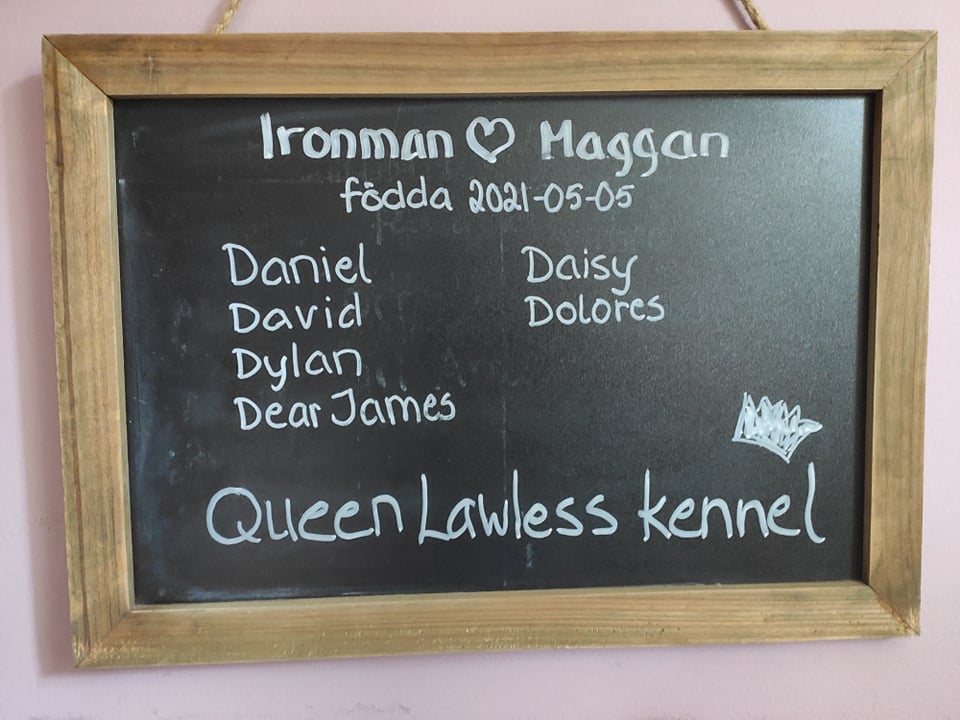 Ironman ♡ Maggan
födda 2021-05-05
Daniel
David
Dylan
Dear James
Daisy
Dolores
Queen Lawless kennel